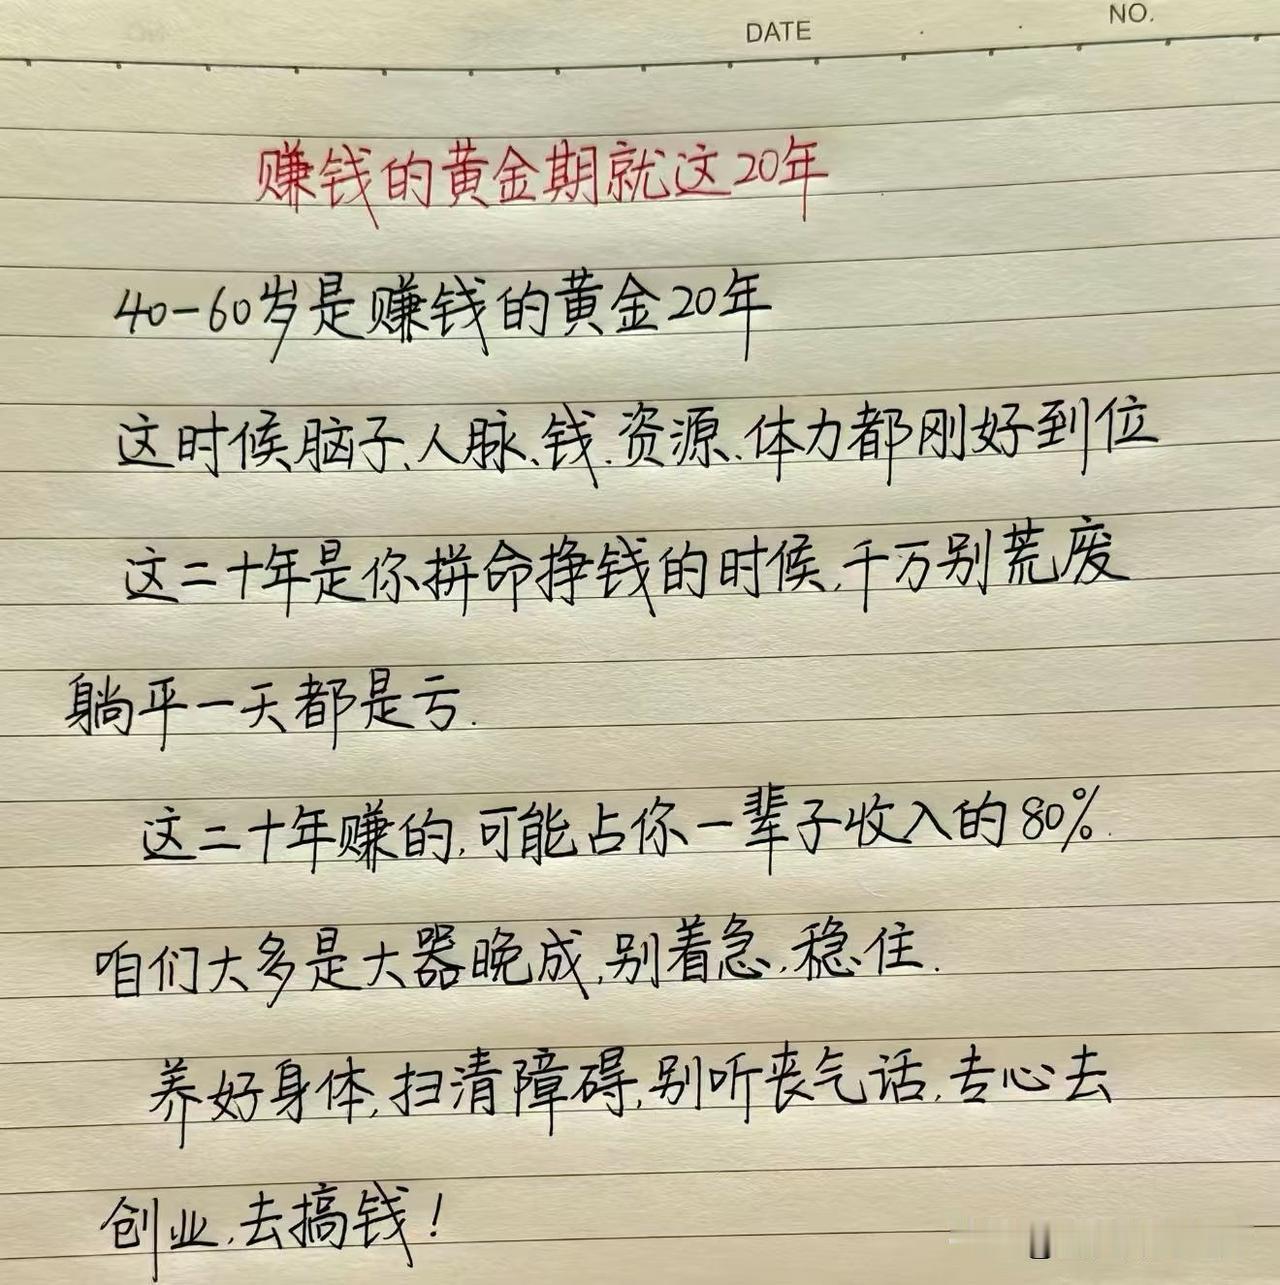 DATE
NO.
赚钱的黄金期就这20年
40-60岁是赚钱的黄金20年
这时候脑子、人脉、钱、资源、体力都刚好到位
这二十年是你拼命挣钱的时候,千万别荒废
躺平一天都是亏.
这二十年赚的,可能占你一辈子收入的80%.
咱们大多是大器晚成,别着急,稳住.
养好身体,扫清障碍,别听丧气话,专心去
创业,去搞钱!